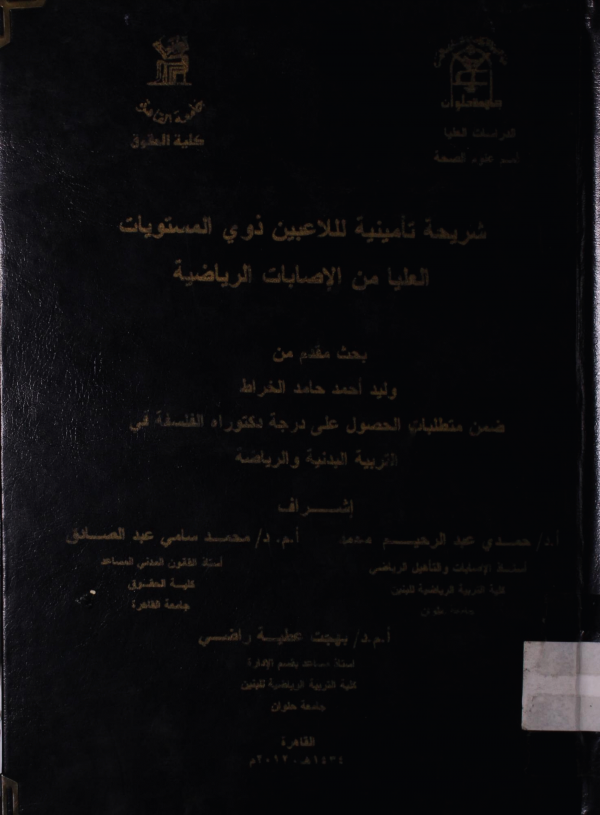 جامعة القاهرة
كلية الحقوق
الدراسات العليا
قسم علوم الصحة
شريحة تأمينية لللاعبين ذوي المستويات
العليا من الإصابات الرياضية
بحث مقدم من
وليد أحمد حامد الخراط
ضمن متطلبات الحصول على درجة دكتوراه الفلسفة في
التربية البدنية والرياضة
إشـــراف
أ.د/ حمـدي عبد الرحيـم محمد
أستاذ الإصابات والتأهيل الرياضي
كلية التربية الرياضية للبنين
جامعة حلوان
أ.م.د/ محمـد سامي عبد الصـادق
أستاذ القانون المدني المساعد
كليـة الحقـوق
جامعة القاهرة
أ.م.د/ بهجت عطيـة راضـي
أستاذ مساعد بقسم الإدارة
كلية التربية الرياضية للبنين
جامعة حلوان
القاهرة
١٤٣٤هـ - ٢٠١٢م